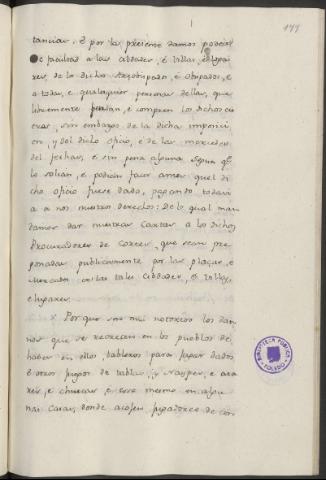 177
tancias. E por la presente damos poder
e facultad a las cibdades, é villas, é lugares,
de los dichos Arzobispado, é Obispados, e
a todas, e qualesquier personas dellas, que
libremente puedan, e compren los dichos cu
eros, sin embargo de la dicha imposici
on, y del dicho oficio, é de las mercedes
del fechas, e sin pena alguna segun q.e
lo solian, e podian facer antes quel di
cho oficio fuese dado, pagando todavia
a nos nuestros derechos: De lo qual man
damos dar nuestras Cartas a los dichos
Procuradores de Cortes, que sean pre
gonadas publicamente por las plazas, e
mercados en las tales cibdades, é villas,
e lugares.
Por que son mui notorios los da
ños que se recrecen en los pueblos de
haber en ellos tableros para jugar dados
é otros juegos de tablas, y Naypes, e aza
res, e chuecas e eso mesmo en algu
nas casas, donde acogen jugadores de con
BIBLIOTECA PUBLICA
TOLEDO